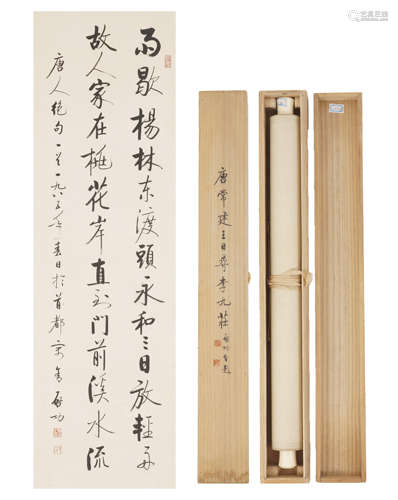 雨歇楊林东渡頭永和三日放輕舟
故人家在桃花岸直到門前溪水流
唐人絕句一首一九八五年春日於首都寓舍启功
唐常建三日尋李九莊
启功自題